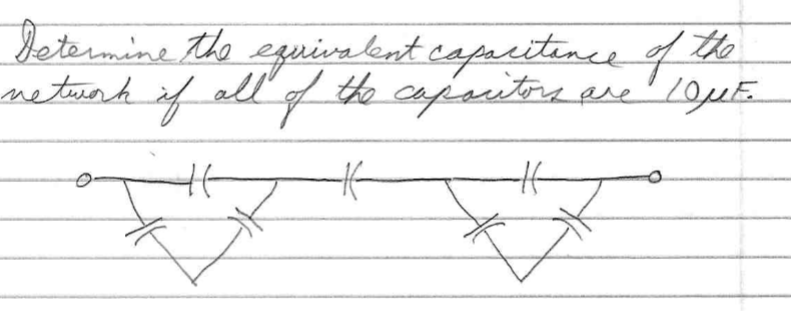 Determine the equivalent capacitance of the
network if all of the capacitors are 10μF.